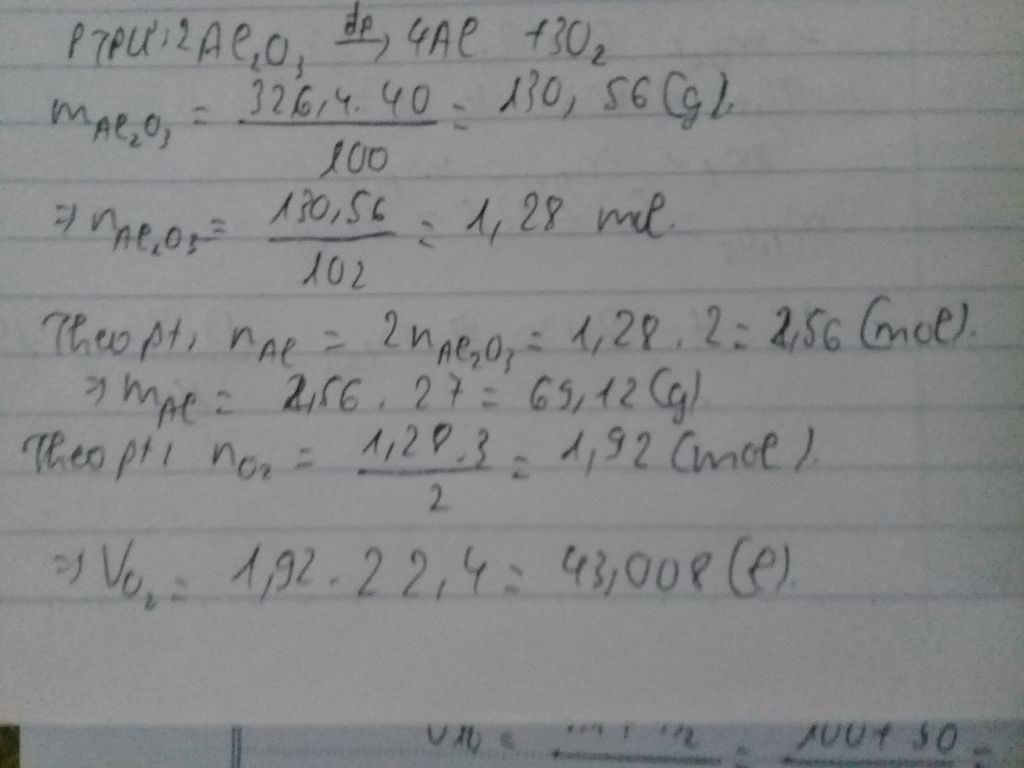 PTPƯ: 2Al₂O₃ đp→ 4Al + 3O₂
m Al₂O₃ = 326,4 . 40 / 100 = 130,56 (g).
⇒ n Al₂O₃ = 130,56 / 102 = 1,28 mol.
Theo pt, n Al = 2n Al₂O₃ = 1,28 . 2 = 2,56 (mol).
⇒ m Al = 2,56 . 27 = 69,12 (g)
Theo pt, n O₂ = 1,28 . 3 / 2 = 1,92 (mol).
⇒ V O₂ = 1,92 . 22,4 = 43,008 (l).